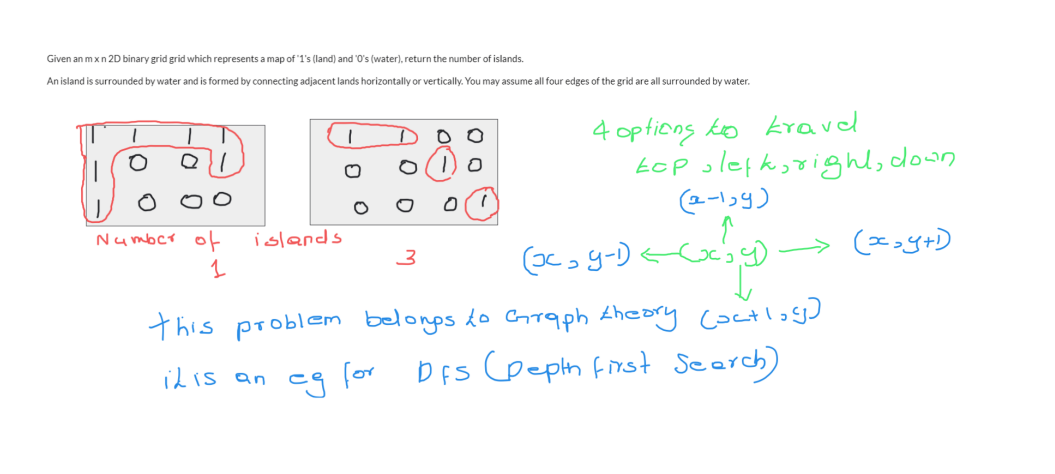 Given an m x n 2D binary grid grid which represents a map of '1's (land) and '0's (water), return the number of islands.
An island is surrounded by water and is formed by connecting adjacent lands horizontally or vertically. You may assume all four edges of the grid are all surrounded by water.
1 1 1 1
1 0 0 1
1 0 0 0
Number of islands
1
1 1 0 0
0 0 1 0
0 0 0 1
3
4 options to travel
top, left, right, down
(x-1,y)
(x,y-1) ← (x,y) → (x,y+1)
(x+1,y)
this problem belongs to Graph theory
it is an eg for DFS (Depth first Search)